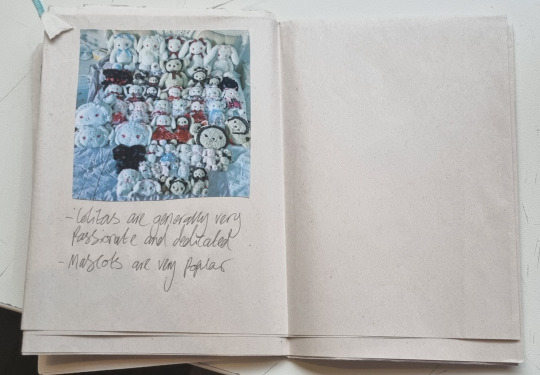 - Lolitas are generally very
Passionate and dedicated
- Mascots are very popular